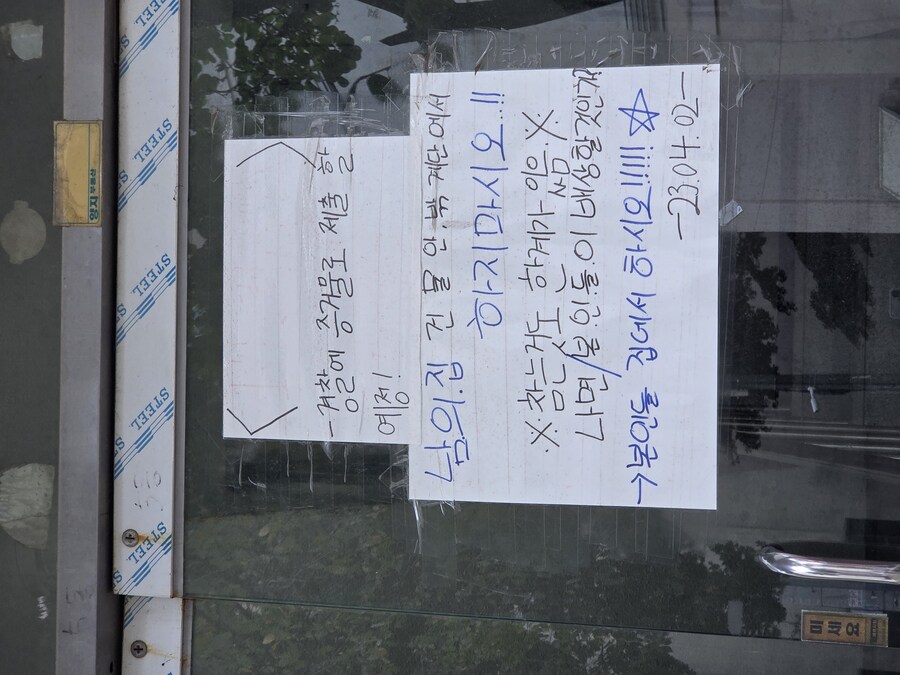 - 경찰에 증거물로 제출 할
예정!
남의.집 건물 안.밖 계단에서
하지마시오..!!
※ 참는거도 한계가 있음.※
나면 본.인.들.이 배상할것인가
→본인들 집에서 하시오!!!!! ☆
-23.04.02-
양지부동산
미세요
STEEL
STEEL
STEEL
STEEL
STEEL
STEEL